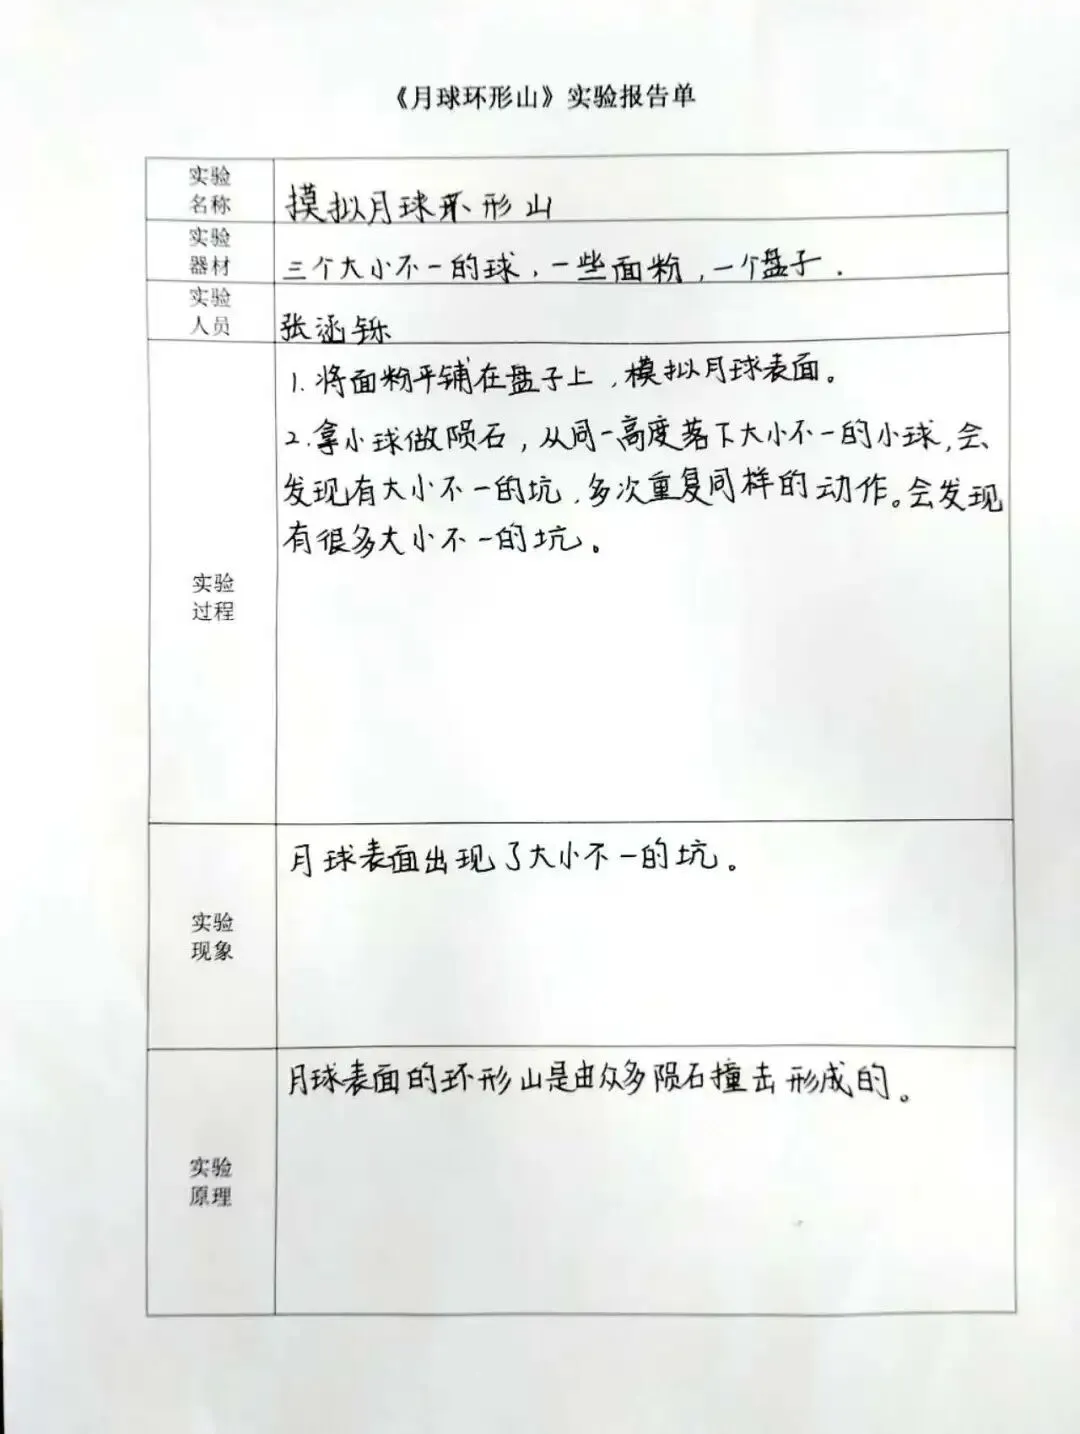 《月球环形山》实验报告单
实验
名称
摸拟月球环形山
实验
器材
三个大小不一的球，一些面粉，一个盘子.
实验
人员
张涵铄
1. 将面粉平铺在盘子上，模拟月球表面。
2. 拿小球做陨石，从同一高度落下大小不一的小球，会
发现有大小不一的坑，多次重复同样的动作。会发现
有很多大小不一的坑。
实验
过程
月球表面出现了大小不一的坑。
实验
现象
月球表面的环形山是由众多陨石撞击形成的。
实验
原理